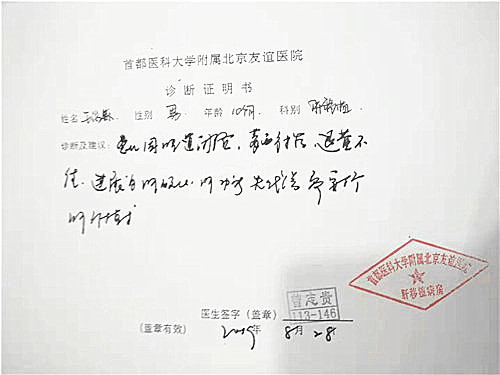 首都医科大学附属北京友谊医院
诊断证明书
姓名 性别 男 年龄 10个月 科别 肝移植
诊断及建议: 患儿因胆道闭锁,葛西术后,退黄不
佳,进展为肝硬化,肝功能失代偿,需行
肝移植术
首都医科大学附属北京友谊医院
肝移植病房
曾志贵
113-146
医生签字(盖章)
(盖章有效) 2019年 8月 28